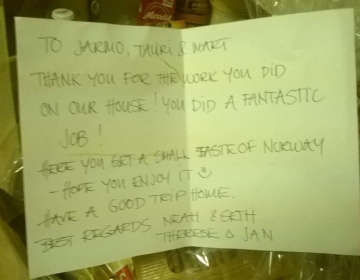 TO JARMO, TAURI & MART
THANK YOU FOR THE WORK YOU DID
ON OUR HOUSE! YOU DID A FANTASTIC
JOB!
HERE YOU GET A SMALL TASTE OF NORWAY
- HOPE YOU ENJOY IT ☺
HAVE A GOOD TRIP HOME.
BEST REGARDS NEAH & SETH
THERESE & JAN